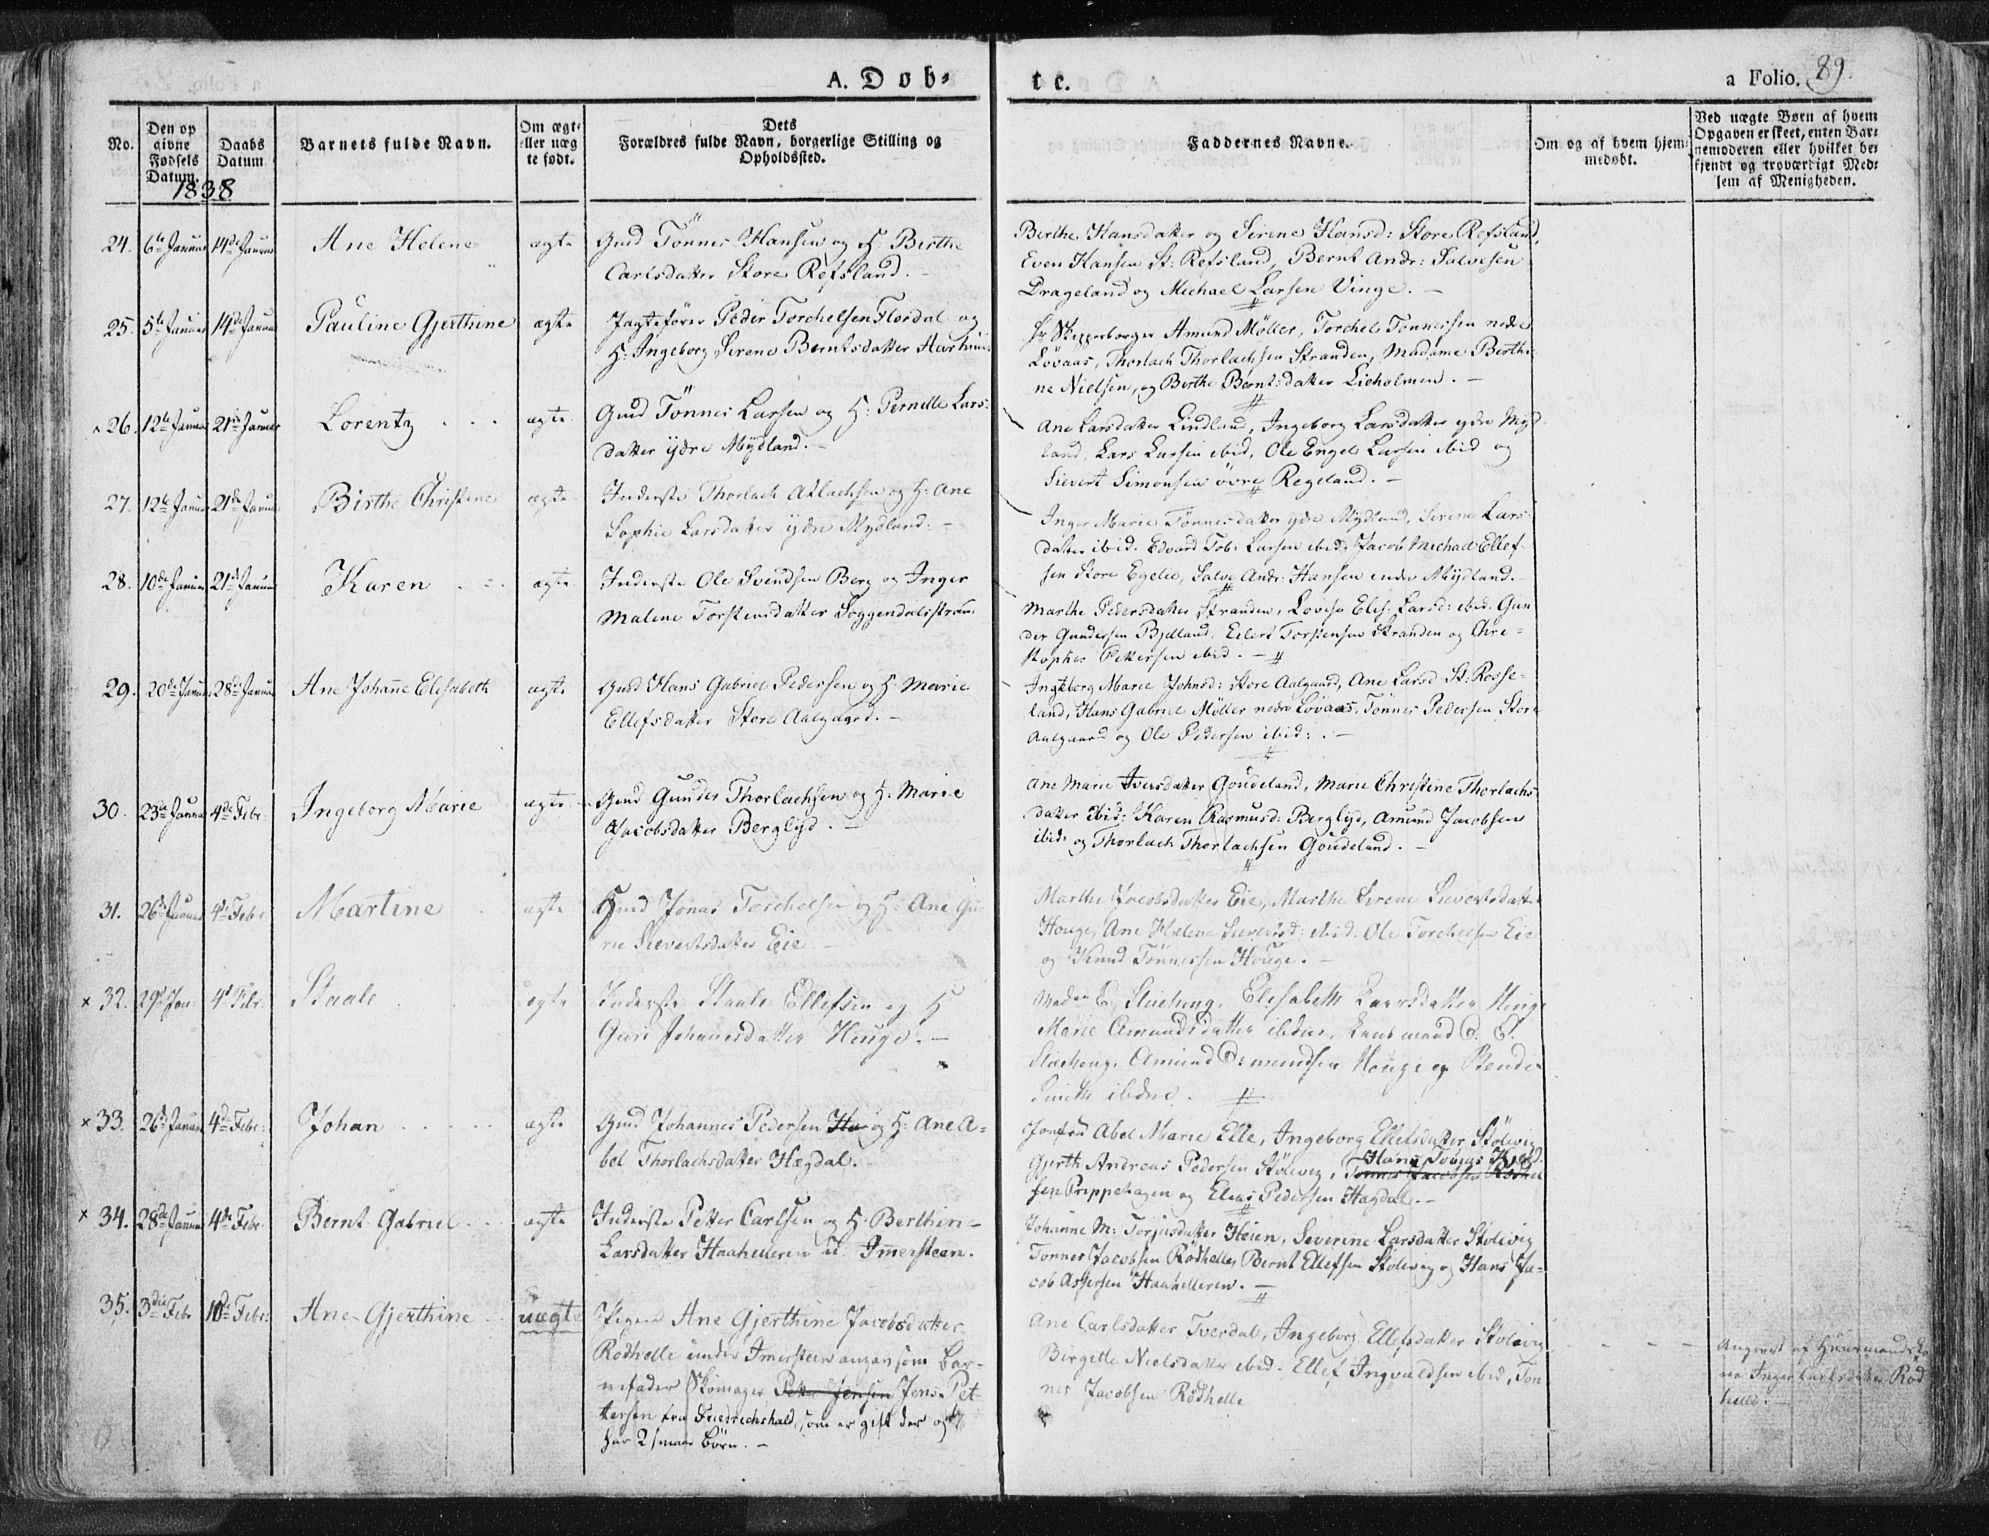 A. Døb-
te.
a Folio. 89.
No.
Den op
givne
Fødsels
Datum.
Daabs
Datum
Barnets fulde Navn.
Om ægt-
eller uæg
te født.
Dets
Forældres fulde Navn, borgerlige Stilling og
Opholdssted.
Faddernes Navne.
Om og af hvem hjem-
medøbt.
Ved uægte Børn af hvem
Opgaven er skeet, enten Bar-
nemoderen eller hvilket be-
kjendt og troværdigt Med-
lem af Menigheden.
1838
24. 6te Januar 14de Januar Ane Helene ægte
Gmd Tönnes Hansen og H: Birthe
Carlsdatter Store Refsland. -
Berthe Hansdatter og Sirene Hansd: Store Refsland,
Even Hansen St: Refsland, Bernt Andr: Salvesen
Drageland og Michael Larsen Vinge. -
25. 5te Januar 14de Januar Pauline Gjerthine ægte
Jagtefører Peder Torchelsen Flosdal og
H: Ingeborg Sirene Berntsdatter
Hr Skipperborger Amund Möller, Torchel Tönnessen nedre
Lövaas, Thorlach Thorlachsen Stranden, Madame Berthe-
ne Nielsen, og Berthe Berntsdatter Lieholmen. -
26. 12te Januar 21de Januar Lorentz ægte
Gmd Tönnes Larsen og H: Pernille Lars-
datter ydre Mydland. -
Ane Larsdatter Lindland, Ingeborg Larsdatter ydre Myd-
land, Lars Larsen ibid, Ole Engel Larsen ibid og
Sievert Simonsen övre Regeland. -
27. 12te Januar 21de Januar Birthe Christine ægte
Inderste Thorlach Aslachsen og H: Ane
Sophie Larsdatter ydre Mydland. -
Inger Marie Tönnesdatter ydre Mydland, Sirene Lars-
datter ibid. Edvard Tob: Larsen ibid, Jacob Michael Ellef-
sen Store Egelie, Salve Andr: Hansen indre Mydland.
28. 10de Januar 21de Januar Karen ægte
Inderste Ole Svendsen Berg og Inger
Malene Torstensdatter Soggendalsstran:
Marthe Pedersdatter Stranden, Lovise Elis: Larsd: ibid. Gun
der Gundersen Bjelland, Eilert Torstensen Stranden og Chri-
stopher Pettersen ibid. -
29. 20de Januar 28de Januar Ane Johanne Elisabeth ægte
Gmd Hans Gabriel Pedersen og H: Marie
Ellefsdatter Store Aalgaard. -
Ingeborg Marie Johnsd: Store Aalgaard, Ane Larsd St: Rosse-
land, Hans Gabriel Möller nedre Lövaas, Tönnes Pedersen Store
Aalgaard og Ole Pedersen ibid: . -
30. 23de Januar 4de Febr. Ingeborg Marie ægte
Gmd Gunder Thorlachsen og H: Marie
Jacobsdatter Berglyd. -
Ane Marie Iversdatter Goudeland, Marie Christine Thorlachs-
datter ibid: Karen Rasmusd: Berglyd, Amund Jacobsen
ibid: og Thorlach Thorlachsen Goudeland. -
31. 26de Januar 4de Febr: Martine ægte
Gmd Jonas Torchelsen og H: Ane Gu-
rie Sievertsdatter Eie -
Marthe Jacobsdatter Eie, Marthe Sirene Sievertsdatter
Houge, Ane Helene Sievertsd: ibid. Ole Torchelsen Eie
og Knud Tönnessen Houge. -
× 32. 29de Jan 4de Febr: Staale ægte
Inderste Staale Ellefsen og H
Guri Johannesdatter Houge. -
Madm E. Elisabeth Larsdatter Houge
Marie Amundsdatter ibidem,
Amund Osmundsen Houge og
ibidem.
× 33. 26de Januar 4de Febr: Johan ægte
Gmd Johannes Pedersen Ha og H: Ane A-
bel Thorlachsdatter Hægdal. -
Jomfru Abel Marie Elle, Ingeborg Ellefsdatter Stölevig
Gjerth Andreas Pedersen Stölevig, Tönnes Jacobsen Rödhel Hans Tobias Kield-
sen Prippehagen og Elias Pedersen Hægdal. -
× 34. 28de Januar 4de Febr Bernt Gabriel ægte
Inderste Petter Carlsen og H. Berthine
Larsdatter Haahelleren u. Immersteen.
Johanne M: Torjusdatter Heien, Severine Larsdatter Stölevig
Tönnes Jacobsen Rödhelle, Bernt Ellefsen Stölevig og Hans Ja-
cob Assersen Haahelleren. -
35. 3die Febr 10de Febr: Ane Gjerthine uægte
Pigen Ane Gjerthine Jacobsdatter
Rödhelle under Imersteen angav som Bar-
nefader Skomager Petter Jensen Jens Pet-
tersen fra Friedrichshald, som er gift der og
har 2 smaae Börn. -
Ane Carlsdatter Tverdal, Ingeborg Ellefsdatter Stölevig
Birgitte Nielsdatter ibid. Ellef Ingvaldsen ibid, Tön
nes Jacobsen Rödhelle
Angivet af Huusmandsko-
ne Inger Larsdatter Röd
helle. -